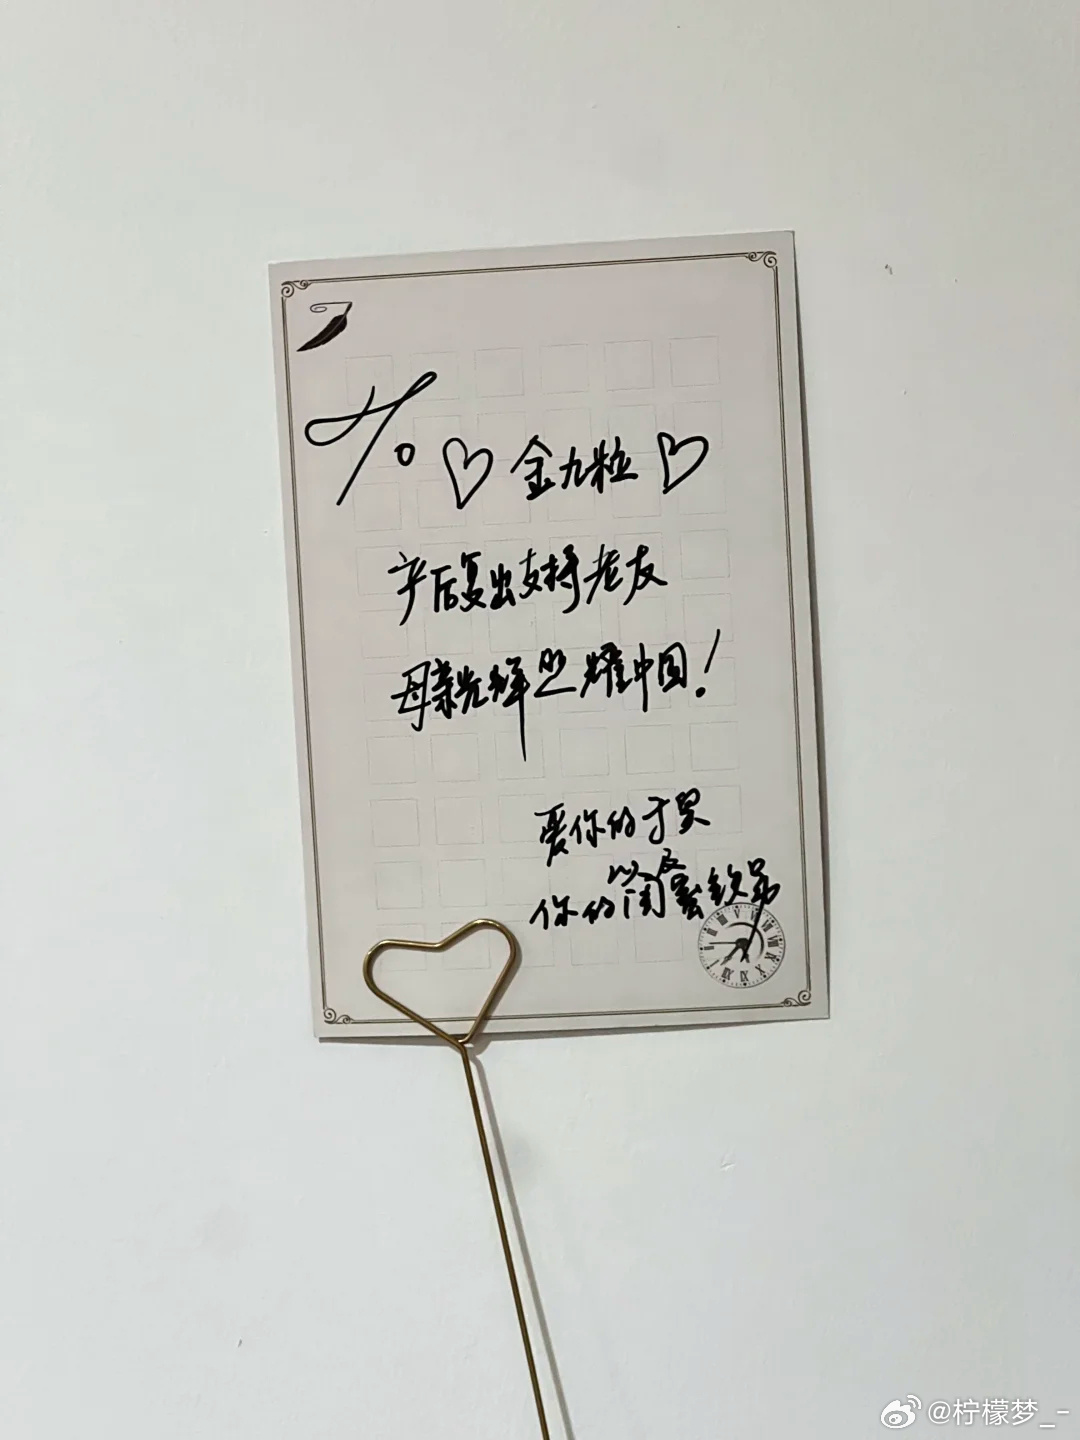 To ♡ 金九粒 ♡
产后复出支持老友
母亲光辉照耀中国！
爱你的于昊
以及
你的闺蜜
@柠檬梦_-